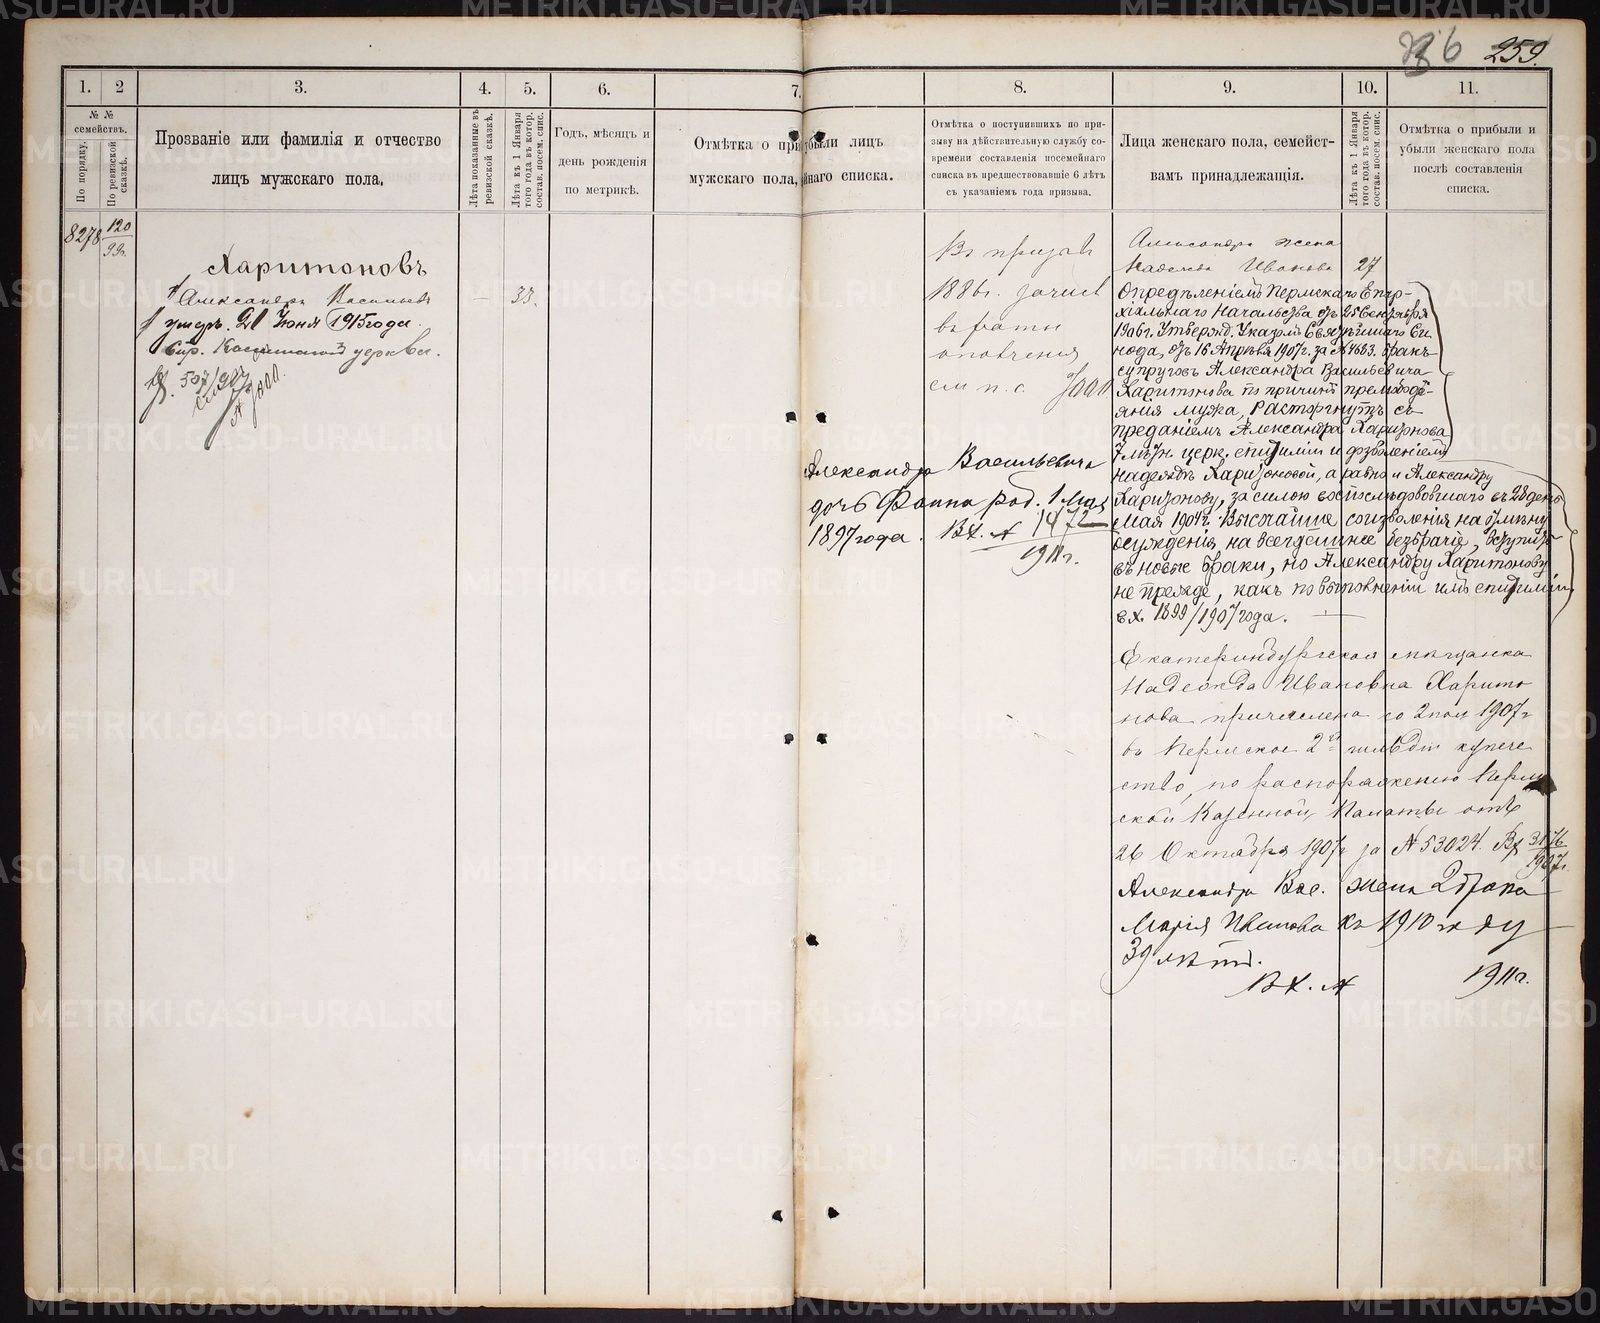 259.
1.
2
3.
4.
5.
6.
7.
8.
9.
10.
11.
№ №
семействъ.
По порядку.
По ревизской
сказкѣ.
Прозваніе или фамилія и отчество
лицъ мужскаго пола.
Лѣта показанные въ
ревизской сказкѣ.
Лѣта къ 1 Января
того года въ котор.
состав. посем. спис.
Годъ, мѣсяцъ и
день рожденія
по метрикѣ.
Отмѣтка о прибыли лицъ
мужскаго пола, списка.
Отмѣтка о поступившихъ по при-
зыву на дѣйствительную службу со-
времени составленія посемейнаго
списка въ предшествовавшіе 6 лѣтъ
съ указаніемъ года призыва.
Лица женскаго пола, семейст-
вамъ принадлежащія.
Лѣта къ 1 Января
того года въ котор.
состав. посем. спис.
Отмѣтка о прибыли и
убыли женскаго пола
послѣ составленія
списка.
8278
120
Харитоновъ
Александръ Васильевъ
— 38.
умеръ. 21 Іюня 1915 года.
церкви.
507/907
Въ призывъ
1886г. зачисл
въ ратн
ополченія
Александра Васильевича
дочь Фаина род. 1 Мая
1897 года. Вх. № 1472
1911г.
Александра жена
Надежда Иванова 27
Опредѣленіемъ Пермскаго Епар-
хіальнаго Начальства отъ 25 Сентября
1906г. Утвержд. Указомъ Святѣйшаго Си-
нода, отъ 16 Апрѣля 1907г. за № 4683. бракъ
супруговъ Александра Васильевича
Харитонова по причинѣ прелюбодѣ-
янія мужа, расторгнутъ съ
преданіемъ Александра Харитонова
7 лѣтн. церк. епитиміи и дозволеніемъ
Надеждѣ Харитоновой, а равно и Александру
Харитонову, за силою воспослѣдовавшаго въ 28 день
Мая 1904г. Высочайше соизволенія на отмѣну
осужденія на всегдашнее безбрачіе, вступить
въ новые браки, но Александру Харитонову
не прежде, какъ по выполненіи имъ епитиміи
вх. 1899/1907 года. —
Екатеринбургская мѣщанка
Надежда Ивановна Харито
нова причислена со 2 пол 1907г
въ Пермское 2й гильдіи купече
ство, по распоряженію Перм
ской Казенной Палаты отъ
26 Октября 1907г за № 53024. Вх 3176
1907г.
Александра Вас. жена 2 брака
Марія Иванова къ 1910 году
39 лѣтъ.
Вх. № 1911г.
METRIKI.GASO-URAL.RU